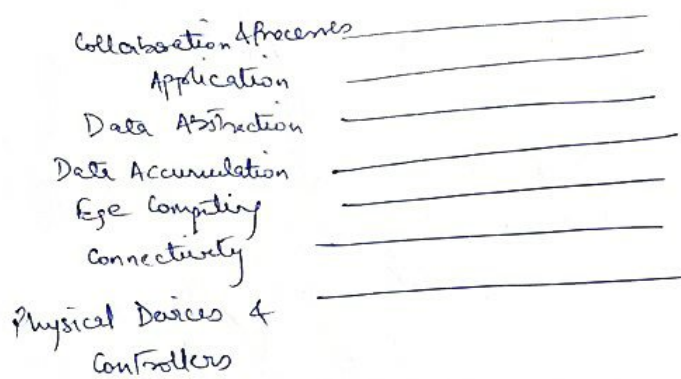 Collaboration & Processes
Application
Data Abstraction
Data Accumulation
Ege Computing
Connectivity
Physical Devices &
Controllers